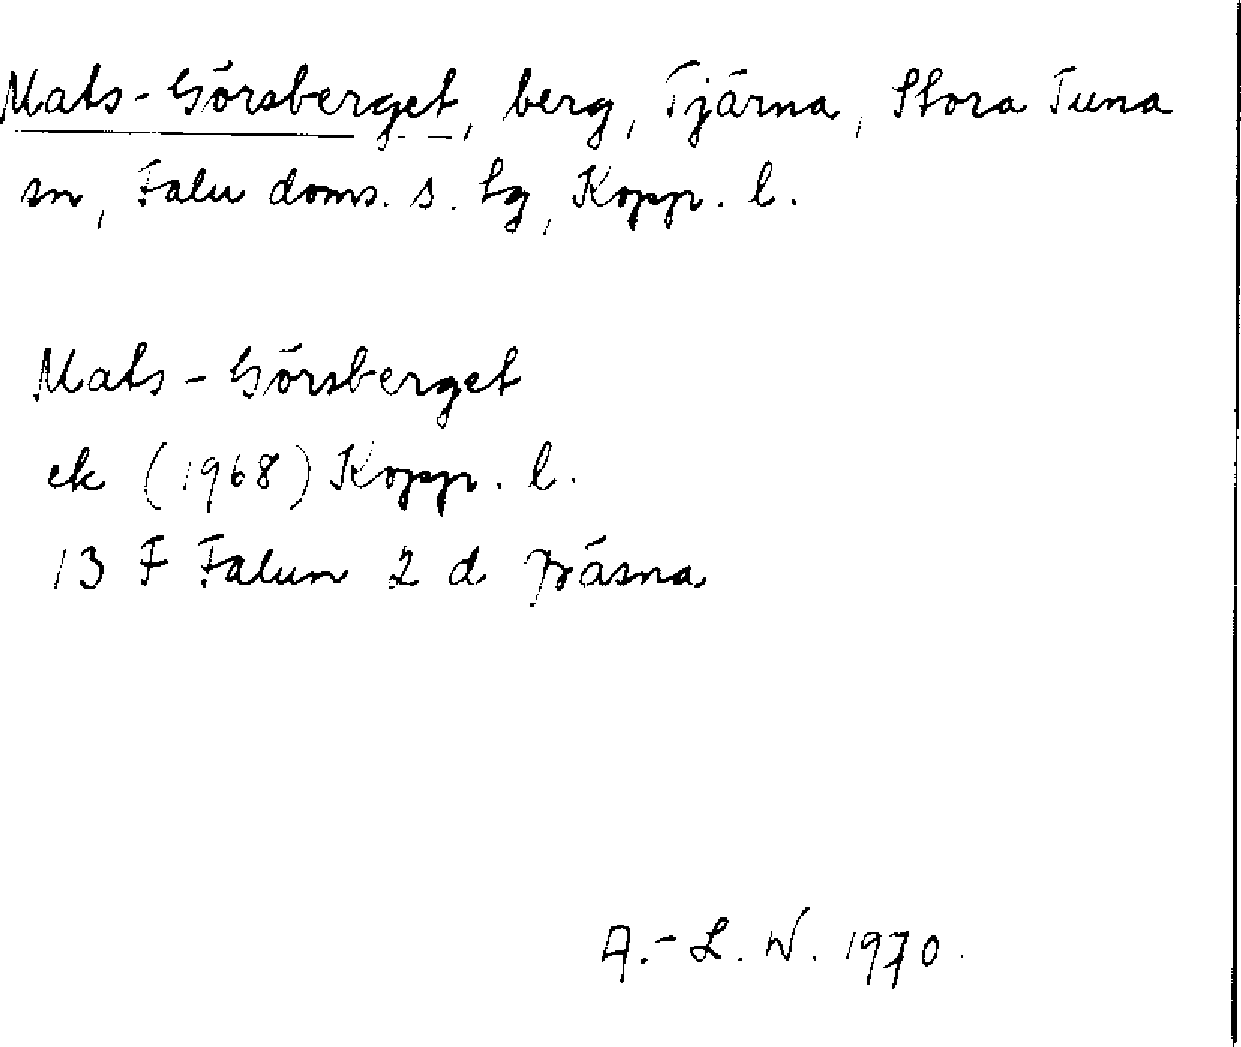 Mats-Görsberget, berg, Tjärna, Stora Tuna
sn, Falu doms. s. tg, Kopp. l.
Mats-Görsberget
ek (1968) Kopp. l.
13 F Falun 2 d Kråsna
A.-L. W. 1970.